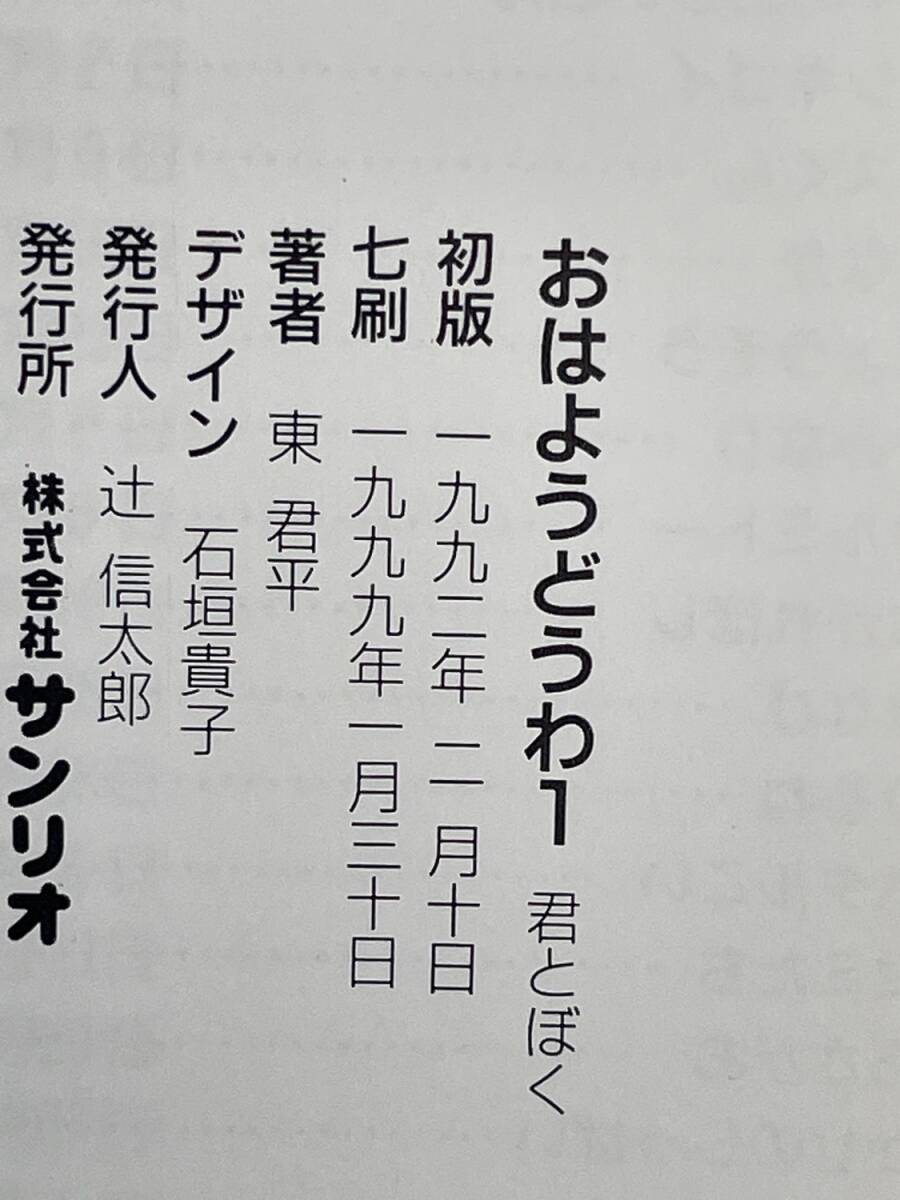 おはようどうわ1 君とぼく
初版 一九九二年 二 月十日
七刷 一九九九年一月三十日
著者 東 君平
デザイン 石垣貴子
発行人 辻 信太郎
発行所 株式会社サンリオ